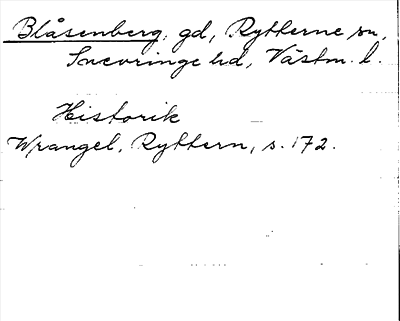 Blåsenberg, gd, Rytterne sn,
Snevringe hd, Västm. l.
Historik
Wrangel, Ryttern, s. 172.